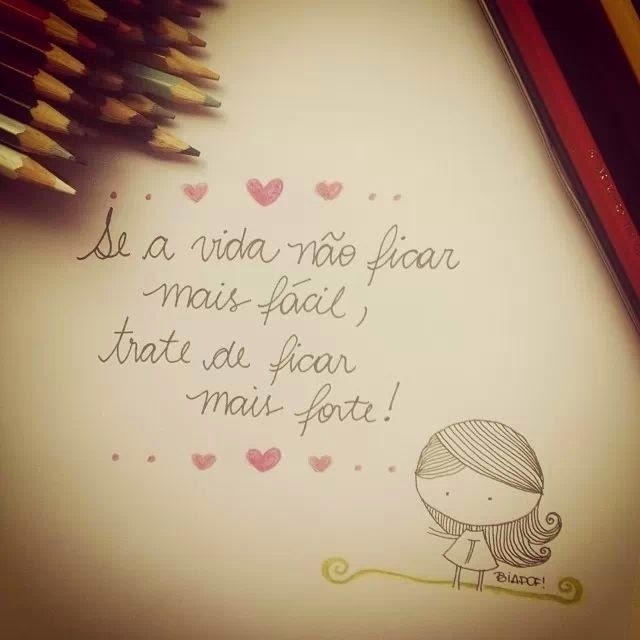 Se a vida não ficar
mais fácil,
trate de ficar
mais forte!
BIAPOF!